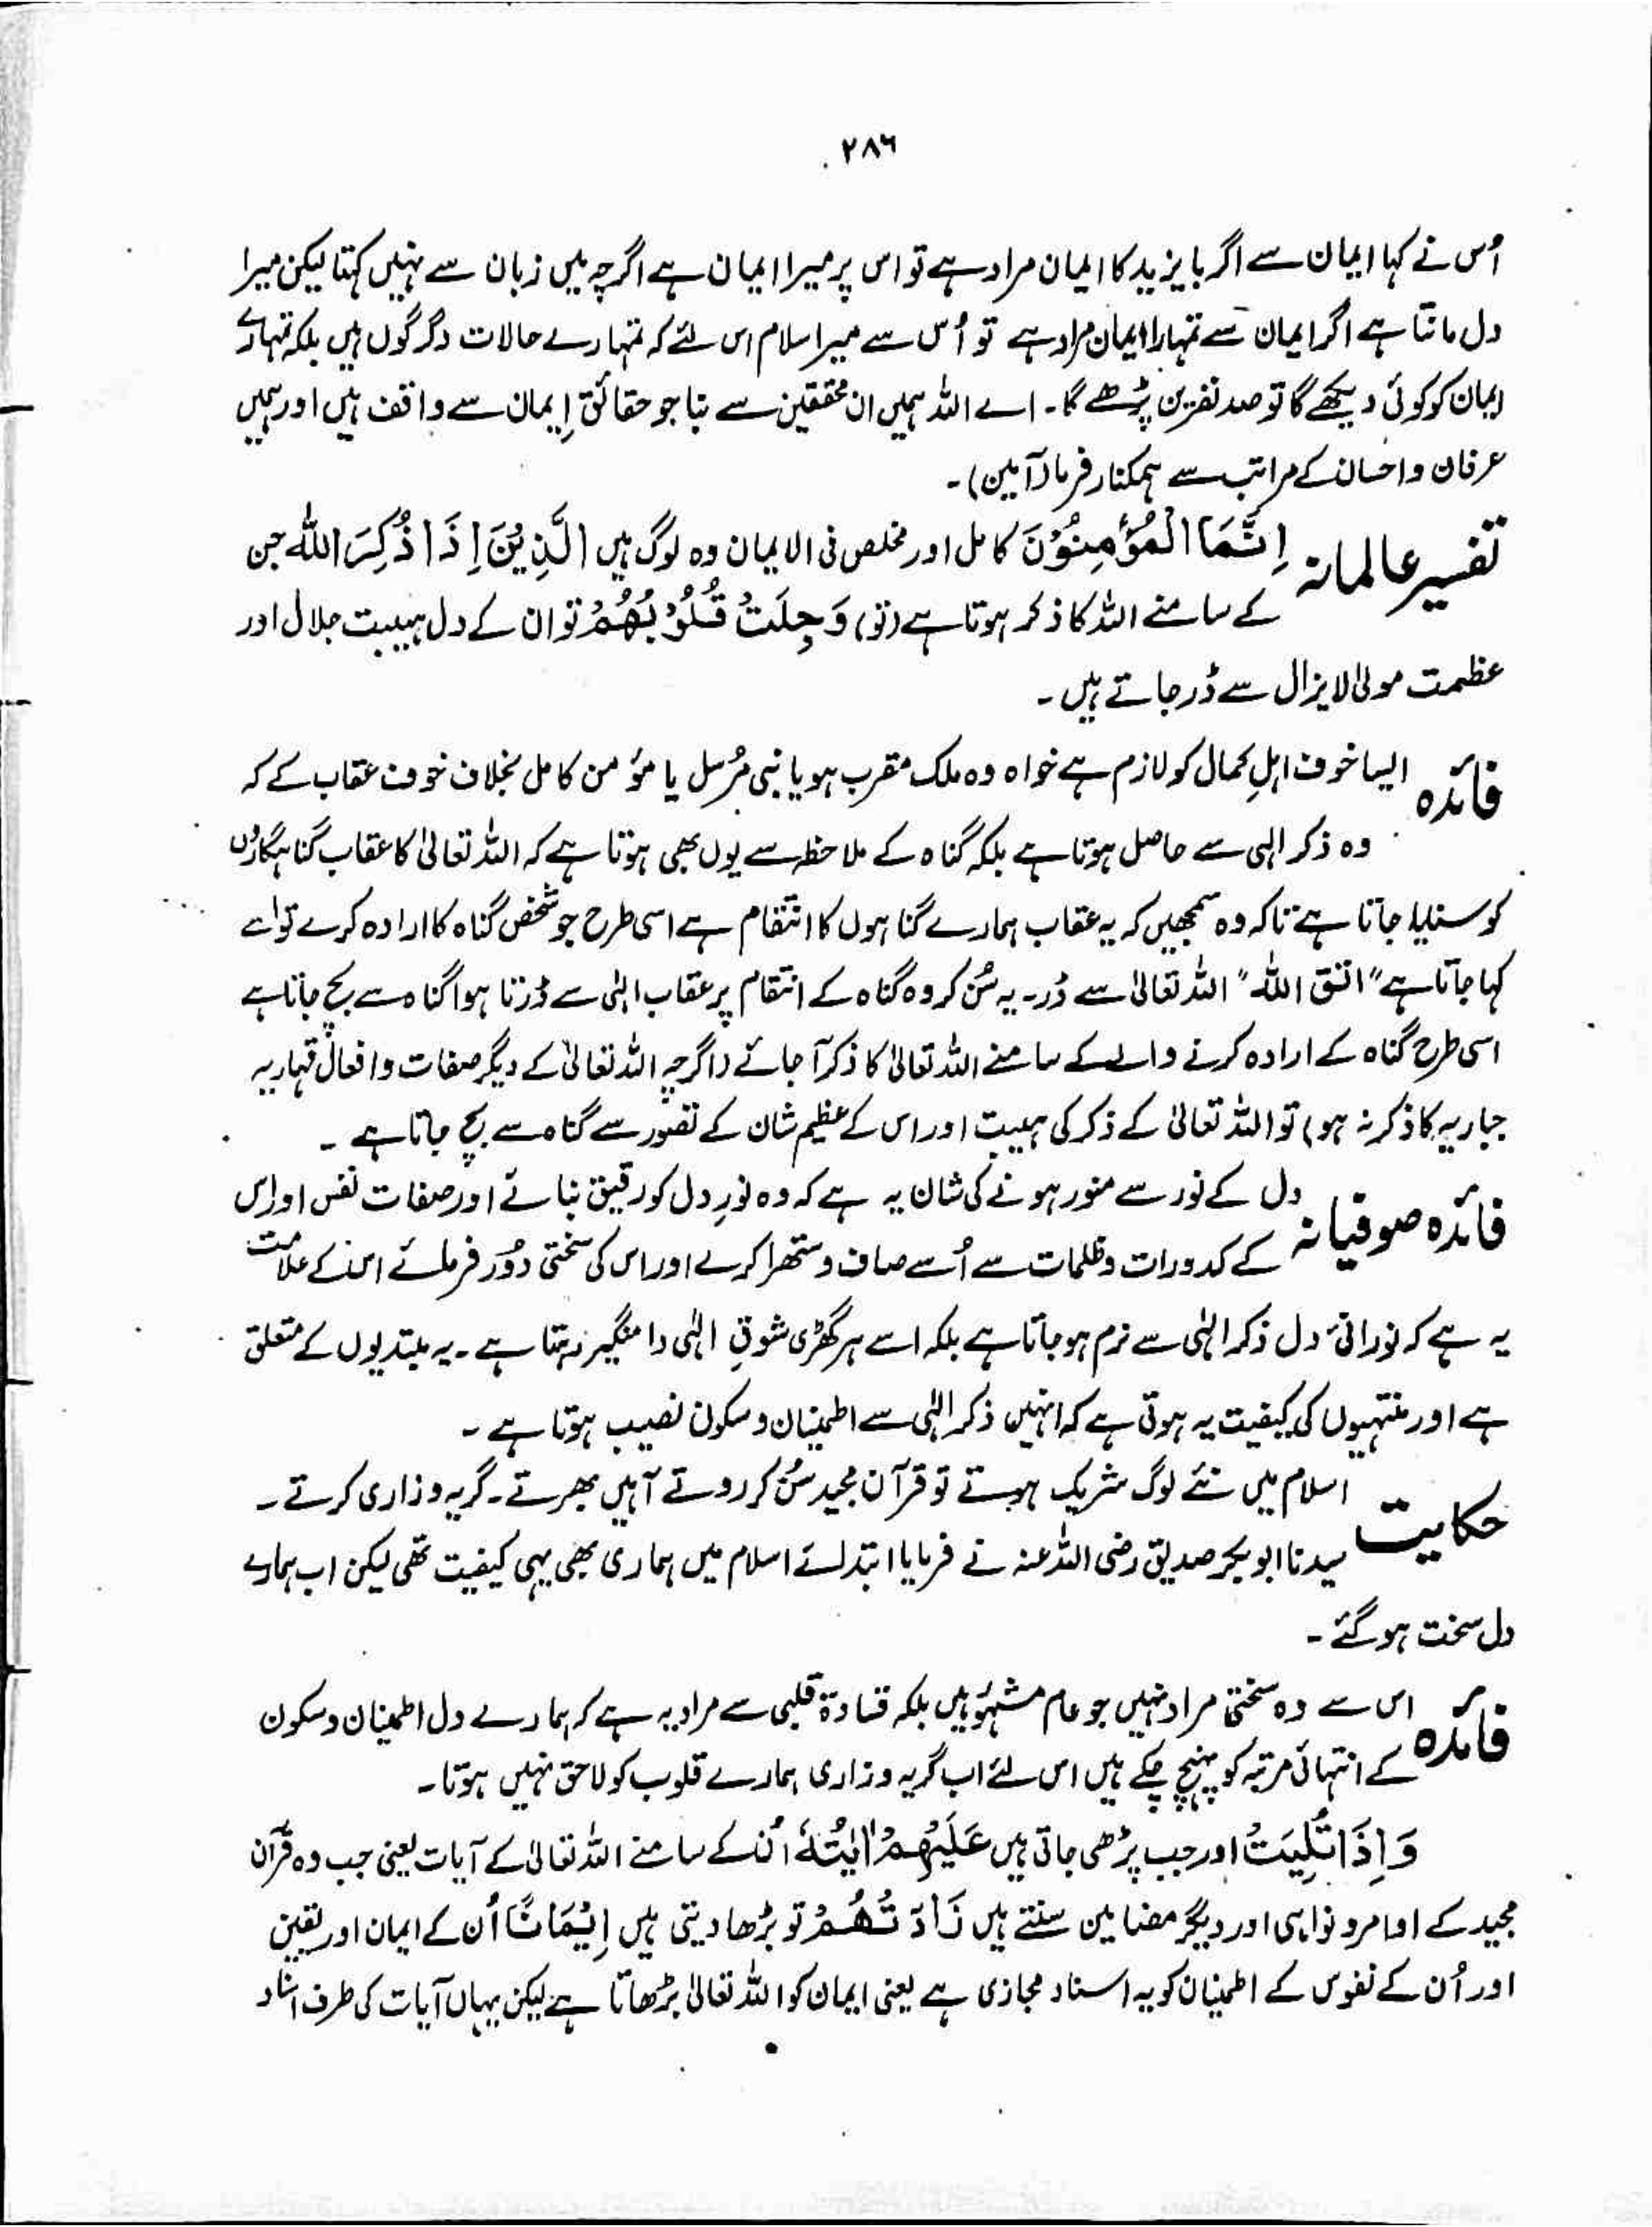 ۲۸۶
اُس نے کہا ایمان سے اگر بایزید کا ایمان مراد ہے تو اس پر میرا ایمان ہے اگرچہ میں زبان سے نہیں کہتا لیکن میرا
دل مانتا ہے اگر ایمان سے تمہارا ایمان مراد ہے تو اُس سے میرا سلام اس لئے کہ تمہارے حالات دگرگوں ہیں بلکہ تمہارے
ایمان کو کوئی دیکھے گا تو صد نفرین پڑھے گا۔ اے اللہ ہمیں ان محققین سے بنا جو حقائقِ ایمان سے واقف ہیں اور ہمیں
عرفان و احسان کے مراتب سے ہمکنار فرما (آمین)۔
تفسیر عالمانہ اِنَّمَا الْمُؤْمِنُوْنَ کامل اور مخلص فی الایمان وہ لوگ ہیں الَّذِیْنَ اِذَا ذُکِرَ اللّٰہُ جن
کے سامنے اللہ کا ذکر ہوتا ہے (تو) وَجِلَتْ قُلُوْبُھُمْ تو ان کے دل ہیبت جلال اور
عظمت مولیٰ لایزال سے ڈر جاتے ہیں۔
فائدہ ایسا خوف اہلِ کمال کو لازم ہے خواہ وہ ملک مقرب ہو یا نبی مُرسل یا مؤمن کامل بخلاف خوف عقاب کے کہ
وہ ذکر الٰہی سے حاصل ہوتا ہے بلکہ گناہ کے ملاحظہ سے یوں بھی ہوتا ہے کہ اللہ تعالیٰ کا عقاب گناہگاروں
کو سنایا جاتا ہے تاکہ وہ سمجھیں کہ یہ عقاب ہمارے گناہوں کا انتقام ہے اسی طرح جو شخص گناہ کا ارادہ کرے تو اسے
کہا جاتا ہے "اتق اللہ" اللہ تعالیٰ سے ڈر۔ یہ سُن کر وہ گناہ کے انتقام پر عقاب الٰہی سے ڈرتا ہوا گناہ سے بچ جاتا ہے
اسی طرح گناہ کے ارادہ کرنے والے کے سامنے اللہ تعالیٰ کا ذکر آ جائے (اگرچہ اللہ تعالیٰ کے دیگر صفات و افعال قہاریہ
جباریہ کا ذکر نہ ہو) تو اللہ تعالیٰ کے ذکر کی ہیبت اور اس کے عظیم شان کے تصور سے گناہ سے بچ جاتا ہے۔
فائدہ صوفیانہ دل کے نور سے منور ہونے کی شان یہ ہے کہ وہ نورِ دل کو رقیق بنائے اور صفات نفس اور اس
کے کدورات و ظلمات سے اُسے صاف و ستھرا کرے اور اس کی سختی دُور فرمائے اس کے علامت
یہ ہے کہ نورانی دل ذکر الٰہی سے نرم ہو جاتا ہے بلکہ اسے ہر گھڑی شوقِ الٰہی دامنگیر رہتا ہے۔ یہ مبتدیوں کے متعلق
ہے اور منتہیوں کی کیفیت یہ ہوتی ہے کہ انہیں ذکر الٰہی سے اطمینان و سکون نصیب ہوتا ہے۔
حکایت اسلام میں نئے لوگ شریک ہوتے تو قرآن مجید سُن کر روتے آہیں بھرتے۔ گریہ و زاری کرتے۔
سیدنا ابوبکر صدیق رضی اللہ عنہ نے فرمایا ابتدائے اسلام میں ہماری بھی یہی کیفیت تھی لیکن اب ہمارے
دل سخت ہو گئے۔
فائدہ اس سے وہ سختی مراد نہیں جو عام مشہور ہیں بلکہ قساوۃ قلبی سے مراد یہ ہے کہ ہمارے دل اطمینان و سکون
کے انتہائی مرتبہ کو پہنچ چکے ہیں اس لئے اب گریہ و زاری ہمارے قلوب کو لاحق نہیں ہوتا۔
وَ اِذَا تُلِیَتْ اور جب پڑھی جاتی ہیں عَلَیْھِمْ اٰیٰتُہٗ اُن کے سامنے اللہ تعالیٰ کے آیات یعنی جب وہ قرآن
مجید کے اوامر و نواہی اور دیگر مضامین سنتے ہیں زَادَتْھُمْ تو بڑھا دیتی ہیں اِیْمَانًا اُن کے ایمان اور یقین
اور اُن کے نفوس کے اطمینان کو یہ اسناد مجازی ہے یعنی ایمان کو اللہ تعالیٰ بڑھاتا ہے لیکن یہاں آیات کی طرف اسناد